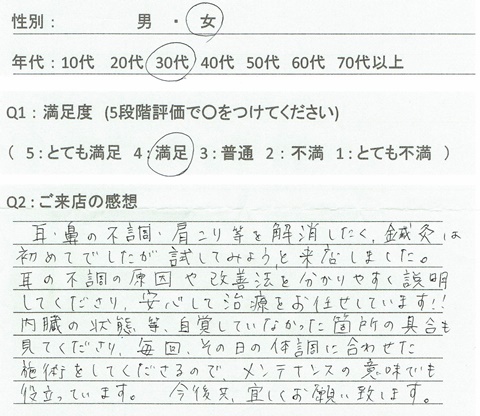 性別： 男 ・ 女
年代：10代 20代 30代 40代 50代 60代 70代以上
Q1：満足度 (5段階評価で〇をつけてください)
( 5：とても満足 4：満足 3：普通 2：不満 1：とても不満 )
Q2：ご来店の感想
耳・鼻の不調・肩こり等を解消したく、鍼灸は
初めてでしたが試してみようと来店しました。
耳の不調の原因や改善法を分かりやすく説明
してくださり、安心して治療をお任せしています!!
内臓の状態等、自覚していなかった箇所の具合も
見てくださり、毎回、その日の体調に合わせた
施術をしてくださるので、メンテナンスの意味でも
役立っています。 今後共、宜しくお願い致します。